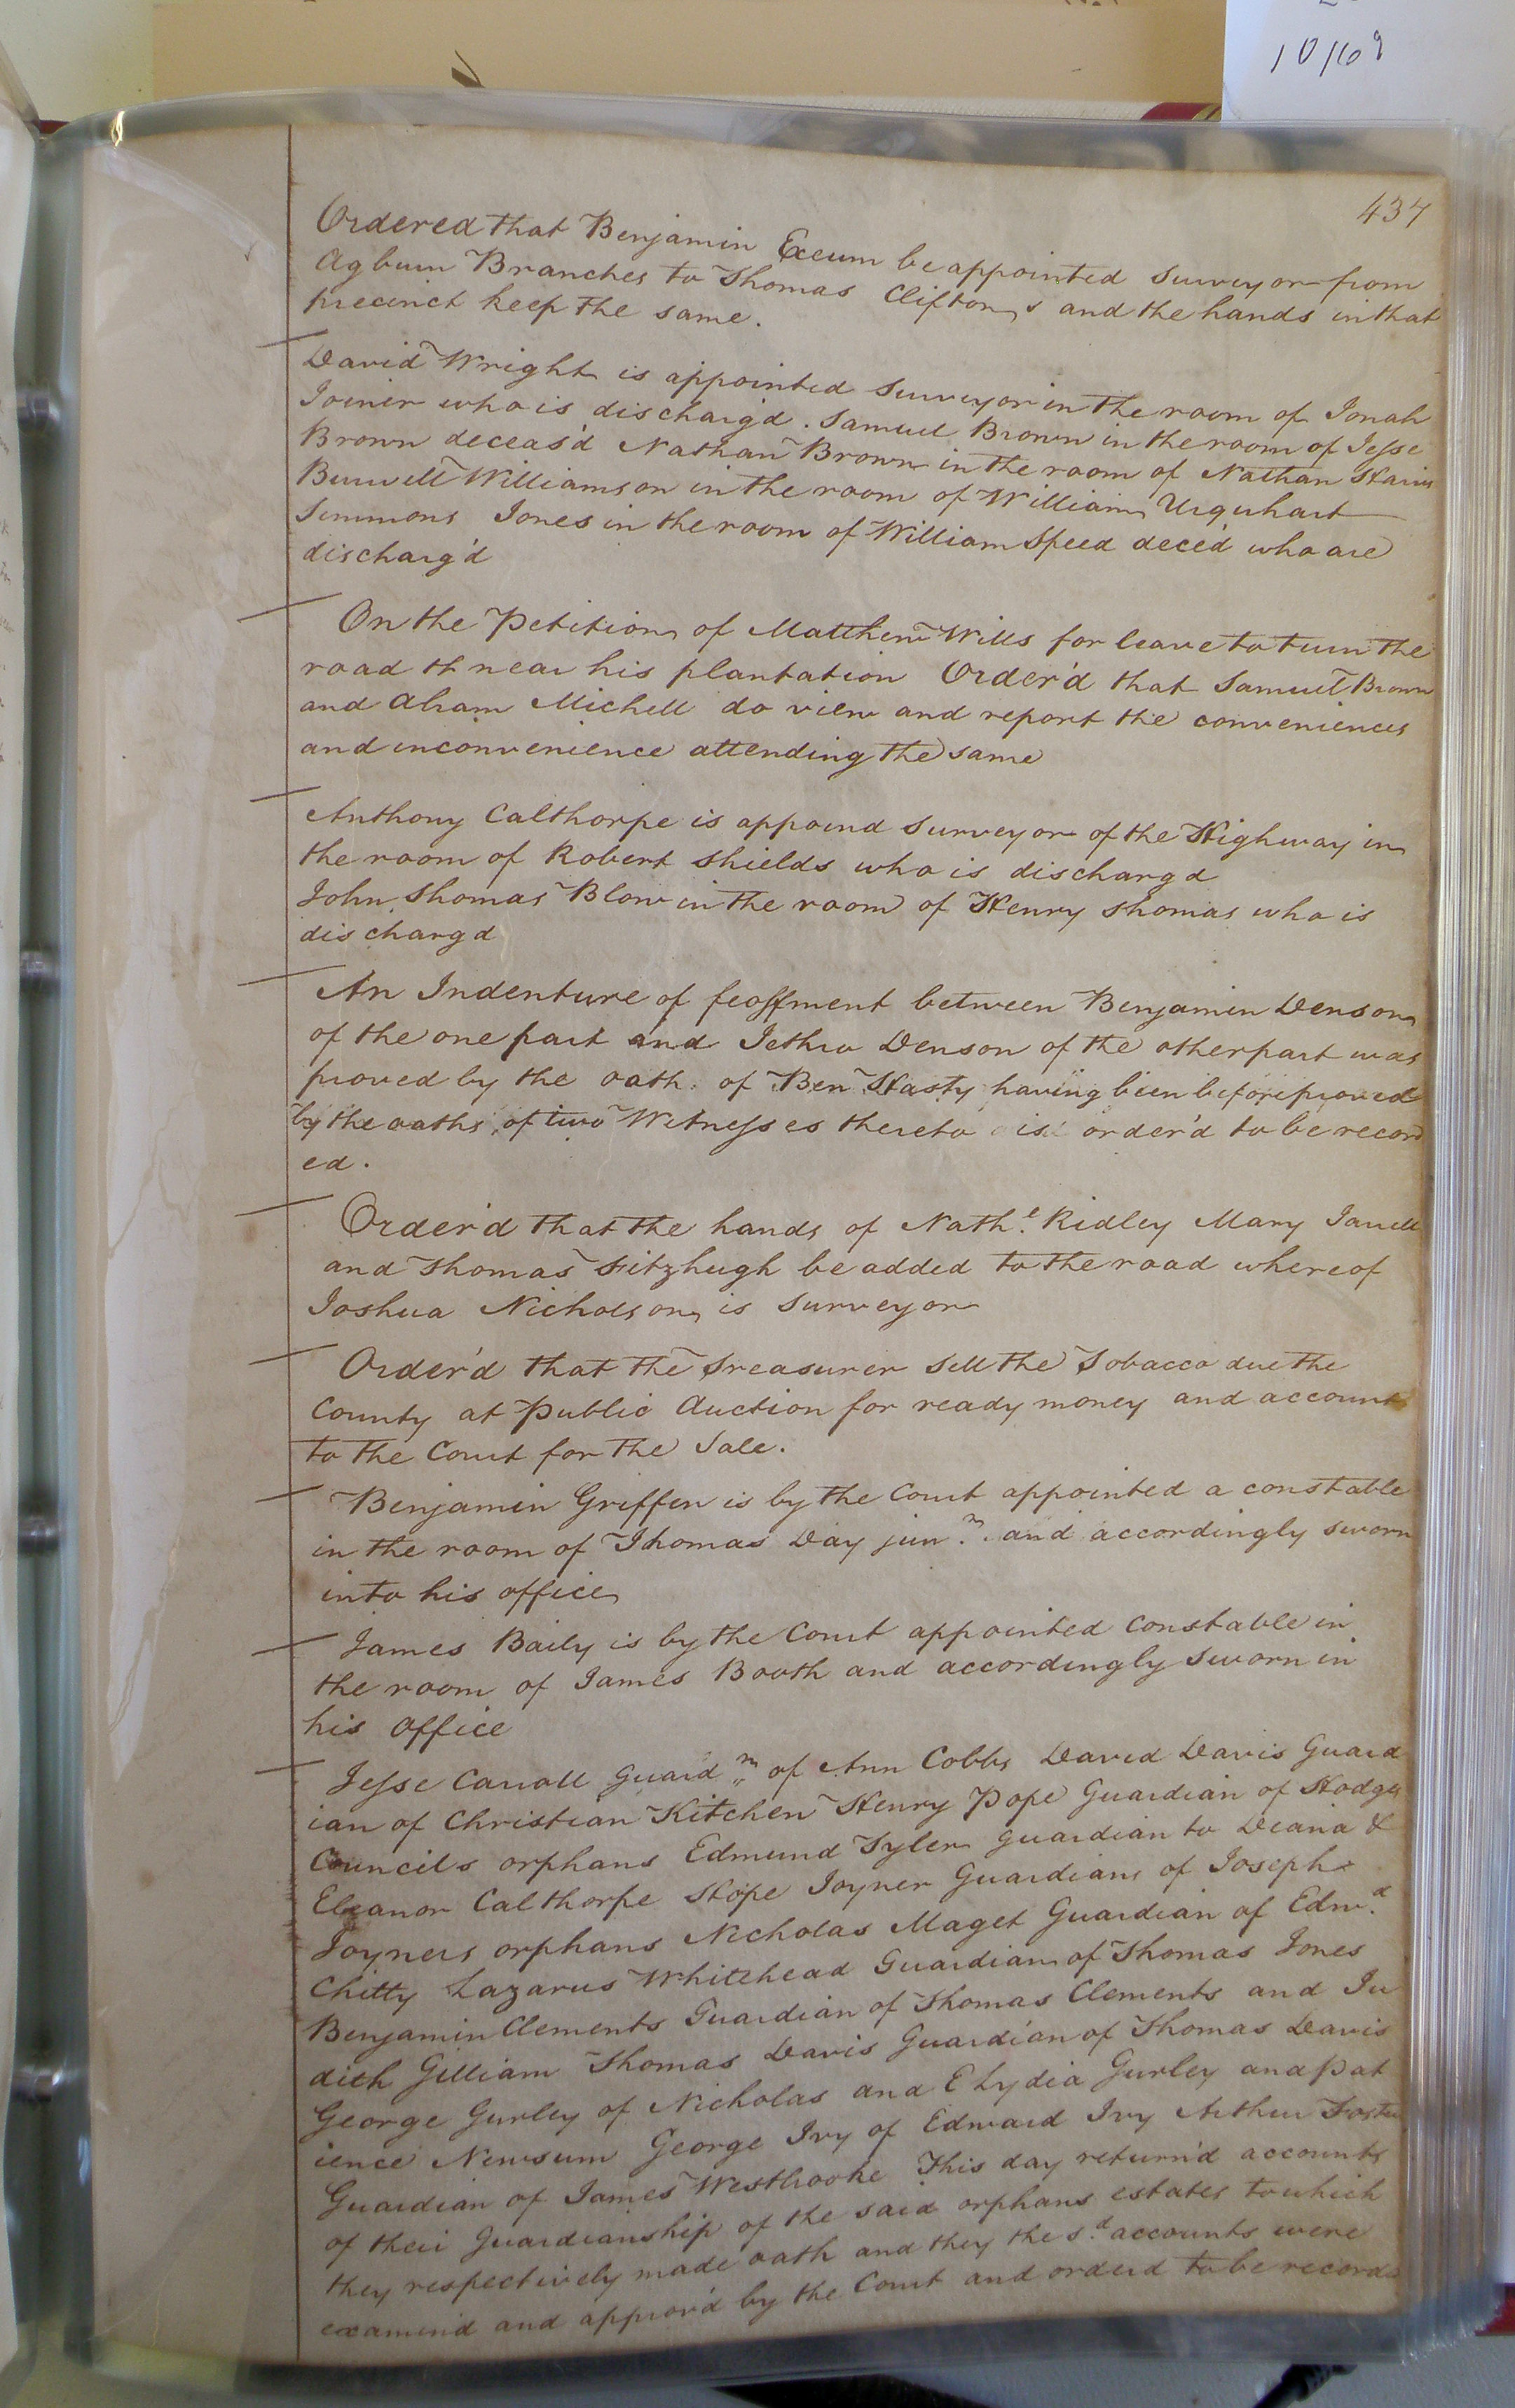 10/69
437
Ordered that Benjamin Exum be appointed Surveyor from
Agburn Branches to Thomas Cliftons and the hands in that
precinct keep the same.
David Wright is appointed Surveyor in the room of Jonah
Joiner who is discharg'd. Samuel Brown in the room of Jesse
Brown deceas'd Nathan Brown in the room of Nathan Harris
Burwell Williamson in the room of William Urquhart
Simmons Jones in the room of William Speed dece'd who are
discharg'd
On the Petition of Matthew Wills for leave to turn the
road th near his plantation Order'd that Samuel Brown
and Abram Michell do view and report the conveniences
and inconvenience attending the same
Anthony Calthorpe is appoind Surveyor of the Highway in
the room of Robert Shields who is dischargd
John Thomas Blow in the room of Henry Thomas who is
dischargd
An Indenture of feoffment between Benjamin Denson
of the one part and Jethro Denson of the other part was
proved by the oath of Ben Hasty having been before proved
by the oaths of two Witnesses thereto is order'd to be record
ed.
Order'd that the hands of Nath.l Ridley Mary Jarrell
and Thomas Fitzhugh be added to the road whereof
Joshua Nicholson is Surveyor
Order'd that the Treasurer Sell the Tobacco due the
County at Public Auction for ready money and account
to the Court for the Sale.
Benjamin Griffen is by the Court appointed a constable
in the room of Thomas Day jun.r and accordingly sworn
into his office
James Baily is by the Court appointed Constable in
the room of James Booth and accordingly sworn in
his office
Jesse Carrall Guard.n of Ann Cobbs David Davis Guard
ian of Christian Kitchen Henry Pope Guardian of Hodges
Councils orphans Edmund Tyler guardian to Diana &
Eleanor Calthorpe Hope Joyner Guardian of Joseph
Joyners orphans Nicholas Maget Guardian of Edw.d
Chitty Lazarus Whitehead Guardian of Thomas Jones
Benjamin Clements Guardian of Thomas Clements and Ju
dith Gilliam Thomas Davis Guardian of Thomas Davis
George Gurley of Nicholas and E Lydia Gurley and Pat
ience Newsum George Ivy of Edward Ivy Arthur Foster
Guardian of James Westbrooke This day return'd accounts
of their Guardianship of the said orphans estates to which
they respectively made oath and they the s.d accounts were
examin'd and approv'd by the Court and orderd to be recorded